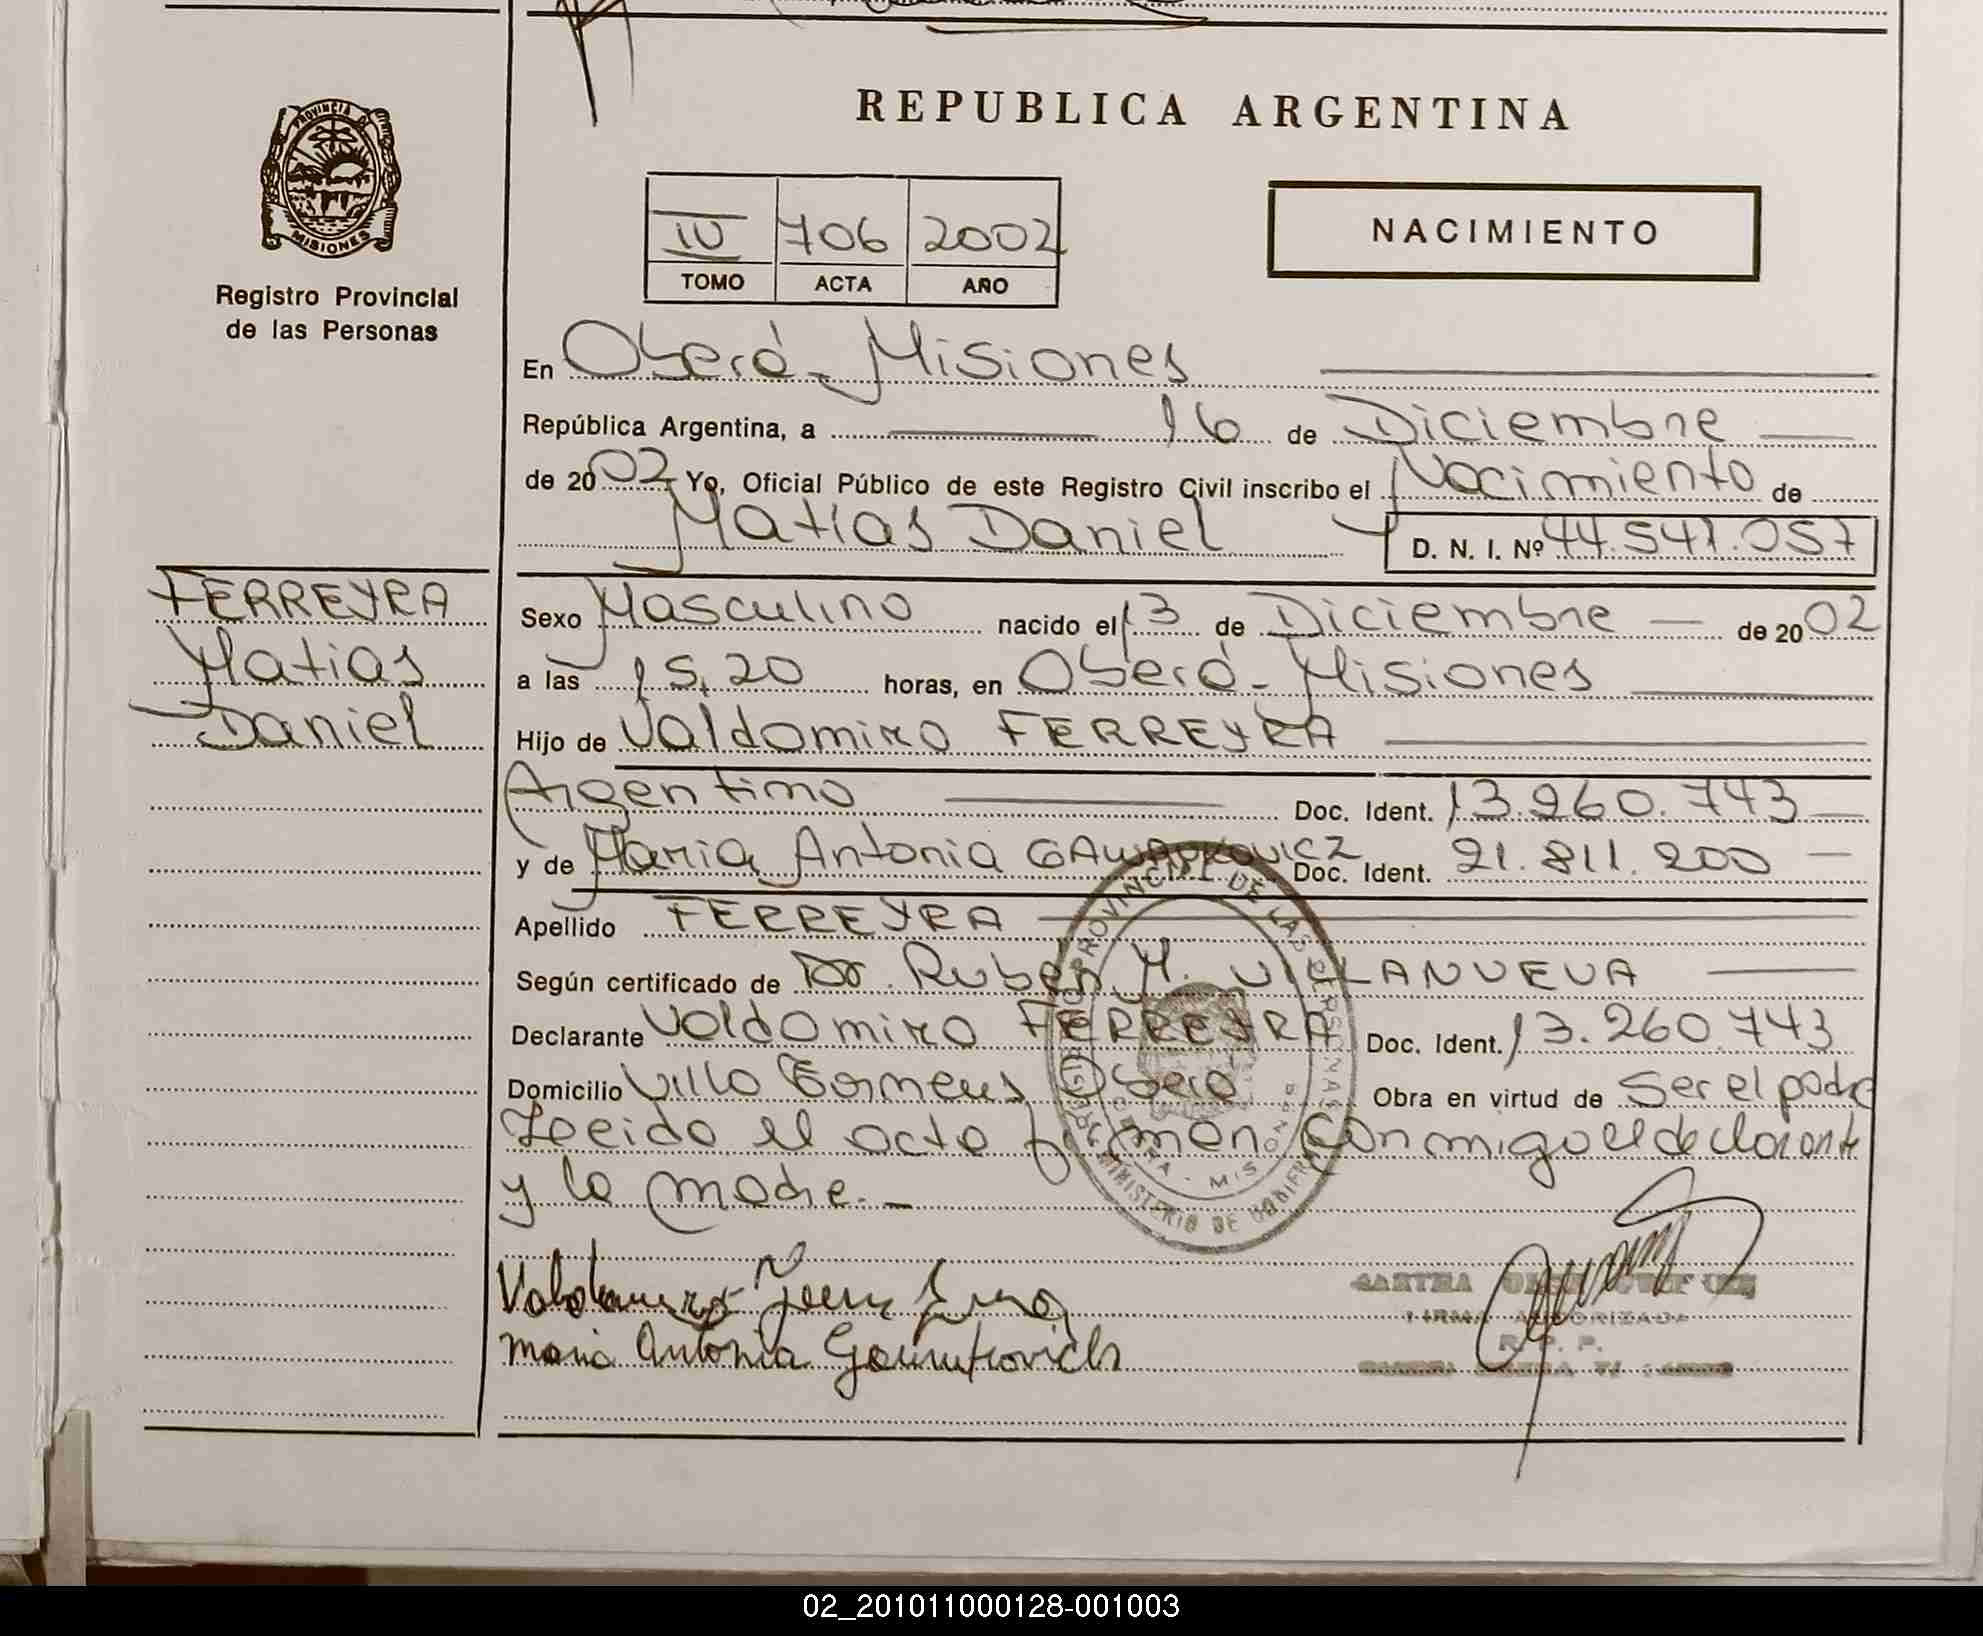 REPUBLICA ARGENTINA
PROVINCIA DE
MISIONES
Registro Provincial
de las Personas
IV 706 2002
TOMO ACTA AÑO
NACIMIENTO
En Oberá - Misiones
República Argentina, a 16 de Diciembre
de 2002 Yo, Oficial Público de este Registro Civil inscribo el Nacimiento de
Matias Daniel D. N. I. Nº 44.541.057
FERREYRA
Matias
Daniel
Sexo Masculino nacido el 13 de Diciembre de 2002
a las 15,20 horas, en Oberá - Misiones
Hijo de Valdomiro FERREYRA
Argentino Doc. Ident. 13.260.743
y de Maria Antonia Doc. Ident. 21.811.200
Apellido FERREYRA
Según certificado de Dr. Ruben M. VILLANUEVA
Declarante Valdomiro FERREYRA Doc. Ident. 13.260.743
Domicilio Villa Oberá Obra en virtud de Ser el padre
Leido el acta firman conmigo el declarante
y la madre.-
PROVINCIAL DE LAS PERSONAS
MINISTERIO DE GOBIERNO
Maria Antonia
FIRMA AUTORIZADA
R. P. P.
02_201011000128-001003